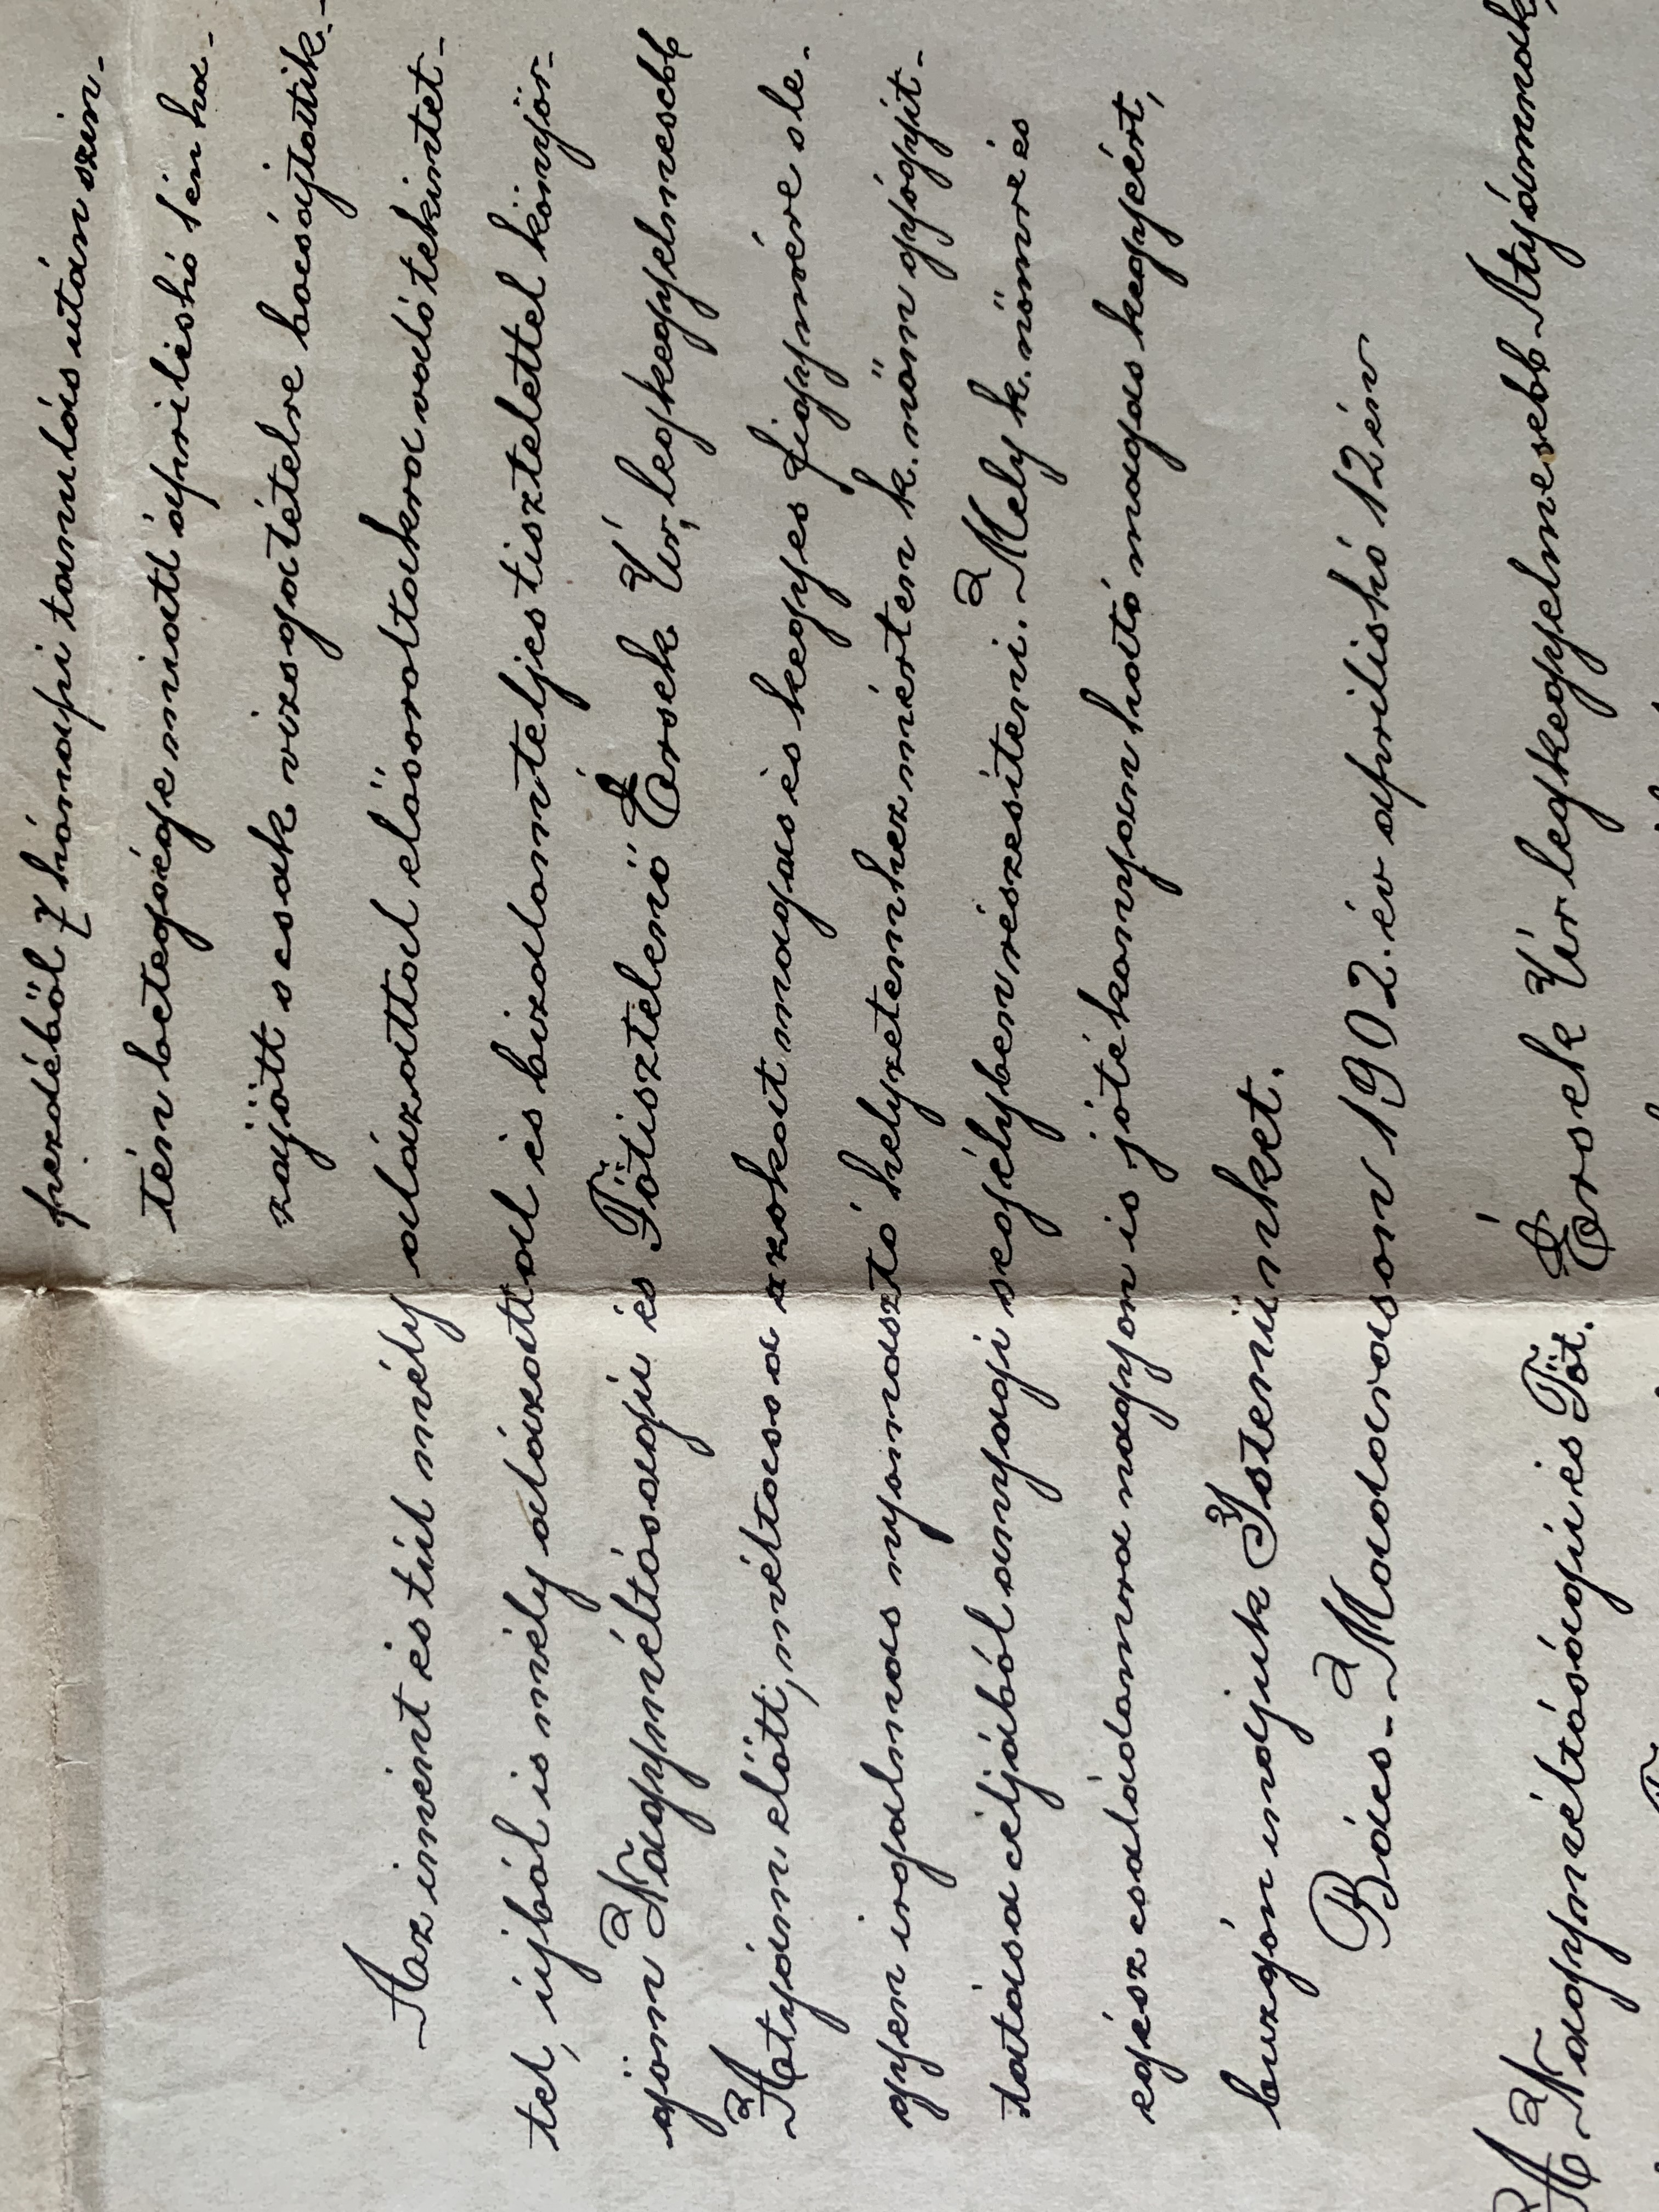 pezdéből 7 hónapi tanulás után szin-
tén betegsége miatt áprilishó 1én ha-
zajött s csak vizsgatételre bocsájtatik.-
Az imént és túl mély alázattal elősoroltakra való tekintet-
tel, újból is mély alázattal és bizalomteljes tisztelettel könyör-
göm Nagyméltóságú és Főtisztelenő Érsek Úr, legkegyelmesebb
Atyám előtt, méltassa azokat magas és kegyes figymére s le-
gyen irgalmas nyomasztó helyzetemhez mérten k. nöm gyógyit-
tatása céljából anyagi segélyben részesíteni. Mely k. nömre és
egész családomra nagyon is jótékonyan ható magas kegyeért,
buzgón imájuk Istenünket.
Bács-Madarason 1902. év aprilishó 12én
A Nagyméltóságú és Főt. Érsek Úr legkegyelmesebb Atyámnak,